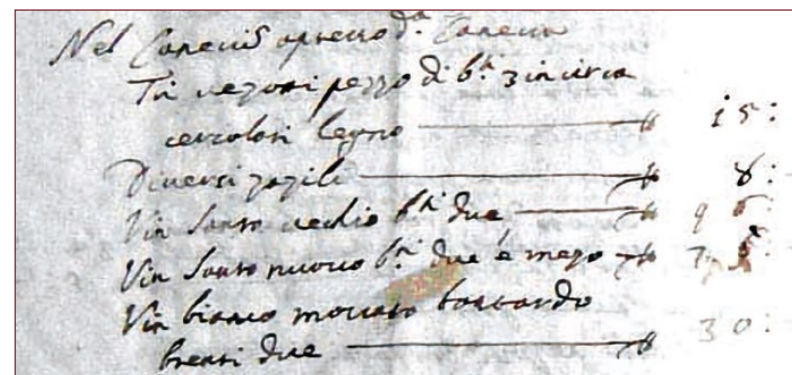 Nel Caneviñ apresso d.ª Caneva
Tri vezoti pezzo di b.ti 3 in circa
cercolati legno ₶ 15:
Diversi zozili ₶ 8:
Vin Santo vechio b.ti due ₶ 96:
Vin Santo nuovo b.ti due e mezo ₶ 75:
Vin bianco moscato
brenti due ₶ 30: